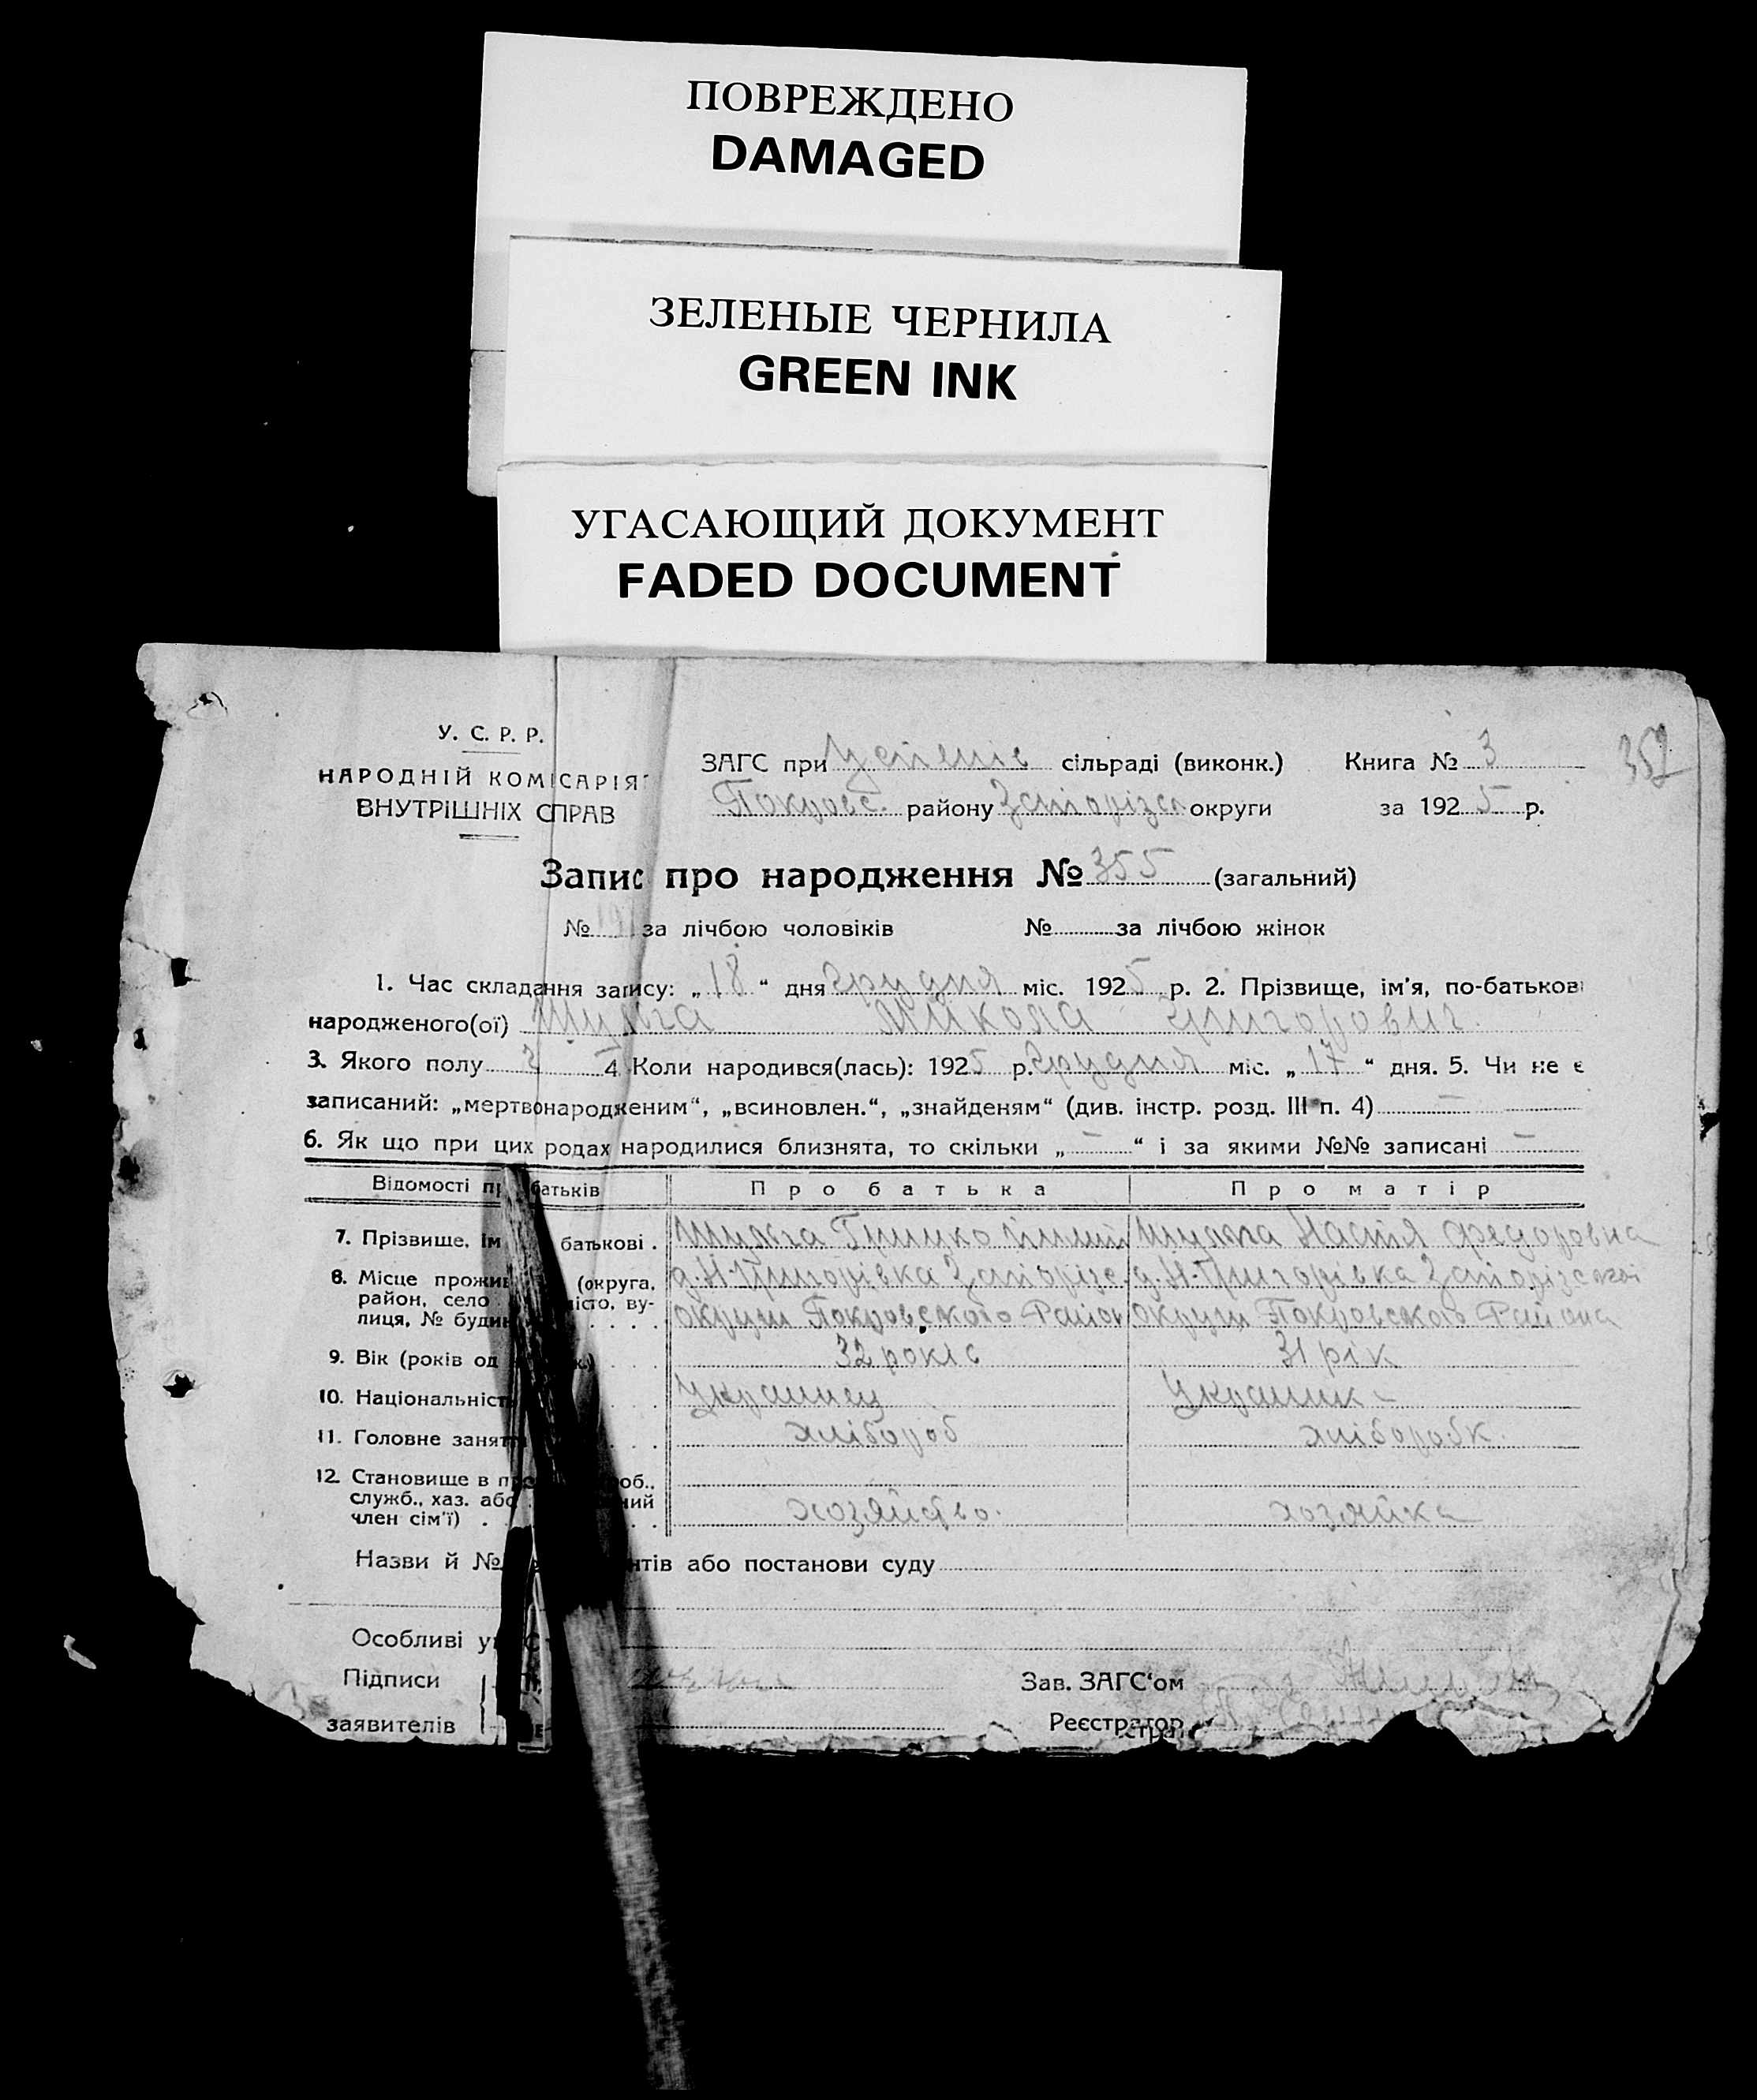 ПОВРЕЖДЕНО
DAMAGED
ЗЕЛЕНЫЕ ЧЕРНИЛА
GREEN INK
УГАСАЮЩИЙ ДОКУМЕНТ
FADED DOCUMENT
У. С. Р. Р.
НАРОДНІЙ КОМІСАРІЯ
ВНУТРІШНІХ СПРАВ
ЗАГС при Успенів сільраді (виконк.) Книга № 3 352
Покровс. району Запорізс округи за 1925 р.
Запис про народження № 355 (загальний)
№ за лічбою чоловіків № за лічбою жінок
1. Час складання запису: „ 18 “ дня Грудня міс. 1925 р. 2. Прізвище, ім’я, по-батькові
народженого(ої) Шульга Микола Григорович.
3. Якого полу ч 4 Коли народився(лась): 1925 р. Грудня міс. „ 17 “ дня. 5. Чи не є
записаний: „мертвонародженим“, „всиновлен.“, „знайденям“ (див. інстр. розд. III п. 4) —
6. Як що при цих родах народилися близнята, то скільки „ — “ і за якими №№ записані —
Відомості пр батьків Про батька Про матір
7. Прізвище, ім батькові . Шульга Грицко Шульга Настя Федоровна
8. Місце прожив (округа, д. Н-Григорівка Запорізс. д. Н-Григорівка Запорізської
район, село місто, ву- округи Покровского Район округи Покровского Района
лиця, № будин . . . .
9. Вік (років од к.) . . 32 років 31 рік
10. Національніст . . Украинец Украинк-
11. Головне занятт . хлібороб хліборобк.
12. Становище в пр роб.,
служб., хаз. або ний хозяйство. хозяйка
член сім’ї) . .
Назви й № нтів або постанови суду
Особливі ув
Підписи Зав. ЗАГС‘ом
заявителів Реєстратор